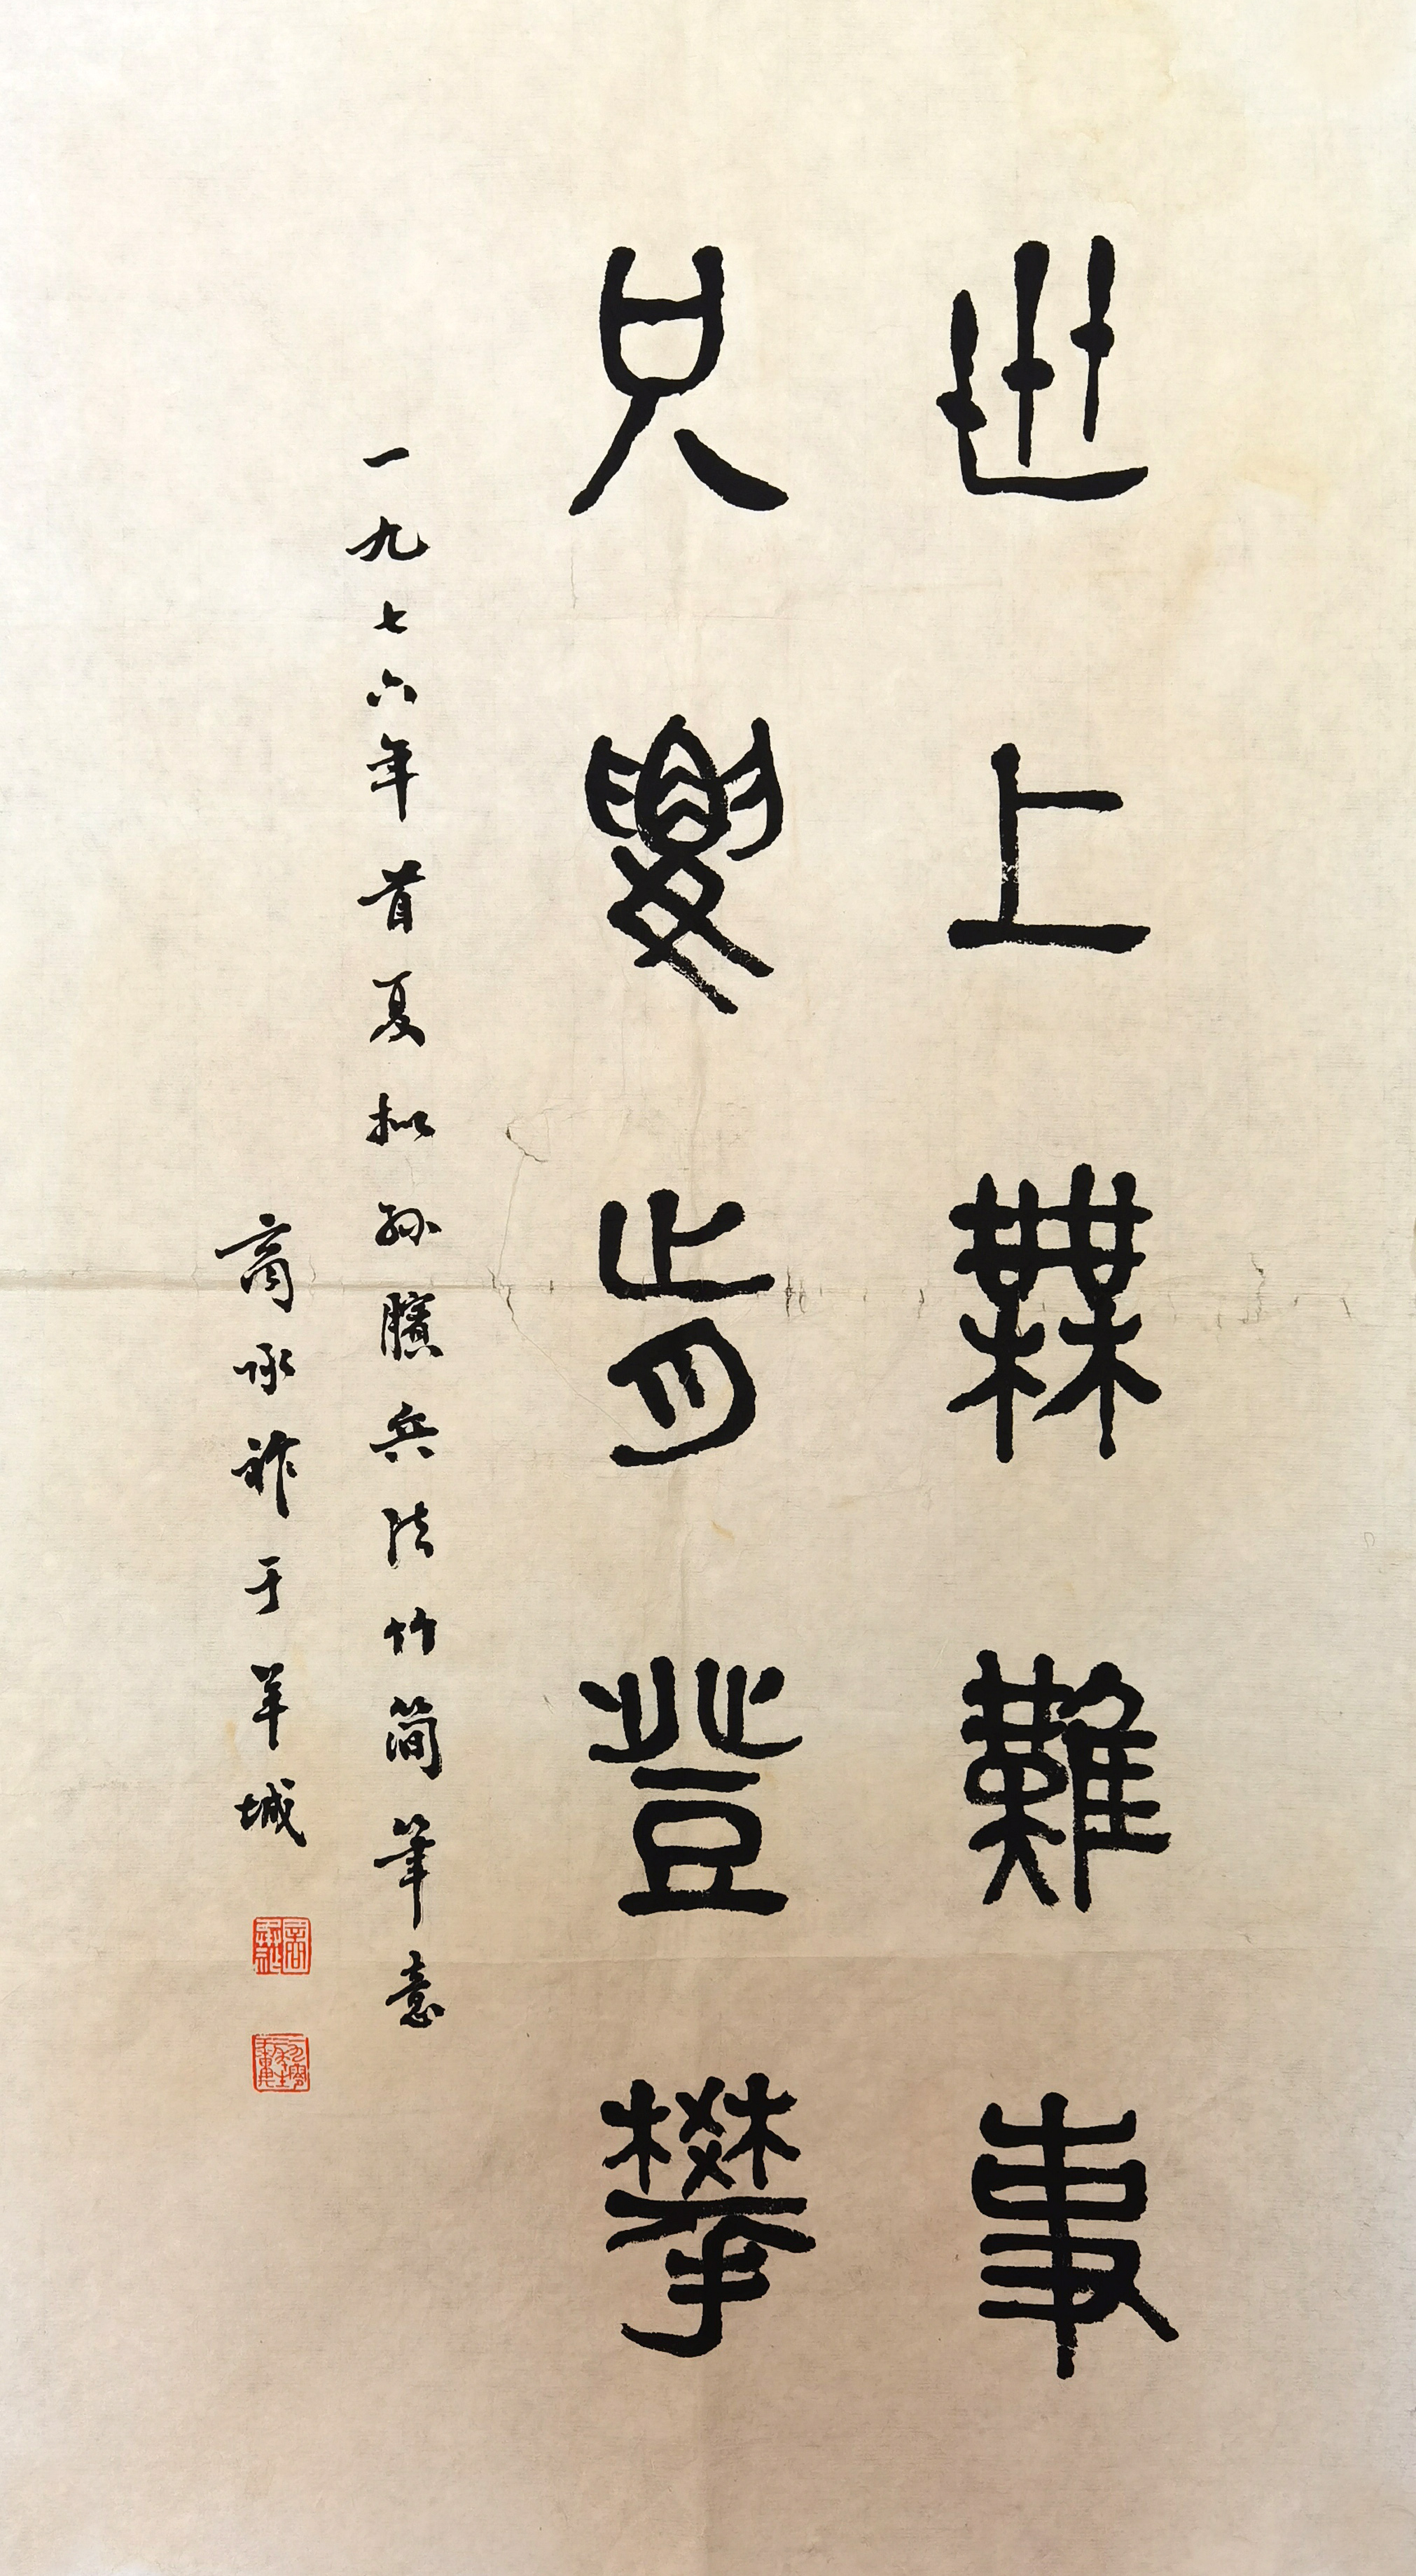 世上無難事
只要肯登攀
一九七六年首夏拟孙臏兵法竹简筆意
商承祚于羊城